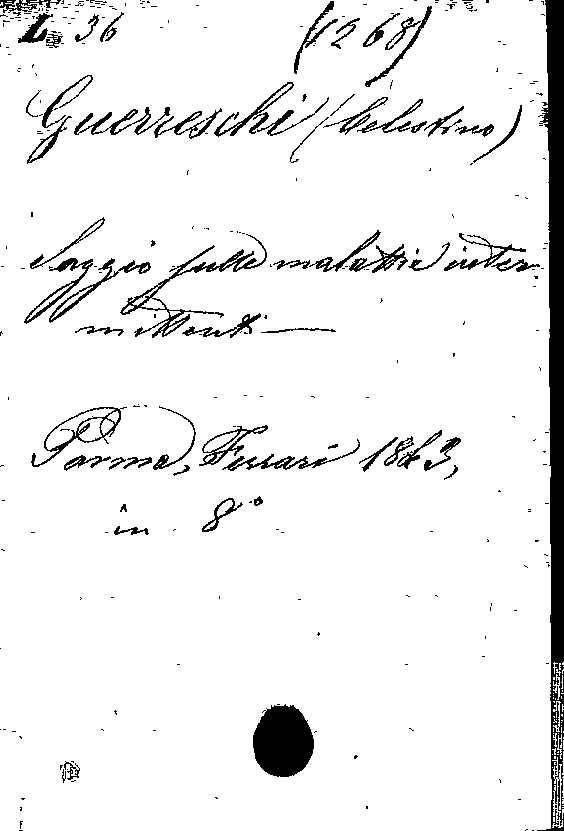 L. 36 (1268)
Guerreschi (Celestino)
Saggio sulle malattie inter
mittenti —
Parma, Ferrari 1843,
in 8°